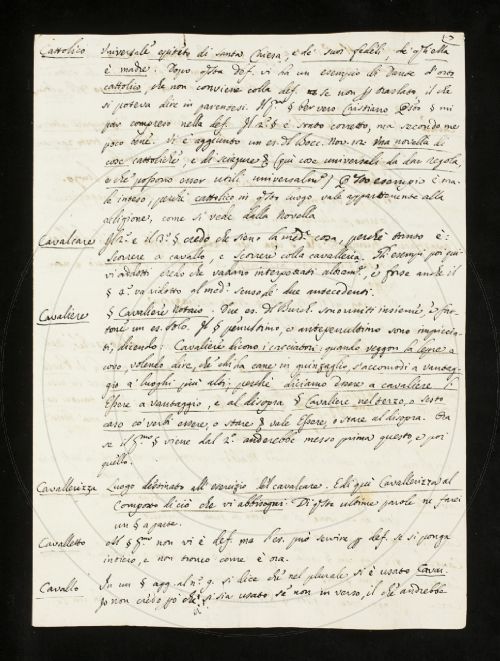 Cattolico Universale epiteto di santa Chiesa, e de' suoi fedeli, de' q̃li ella
è madre. Dopo q̃sta def. vi ha un esempio di Dante d'orto
cattolico, che non conviene colla def. se non p̃ traslato, il che
si poteva dire in parentesi. Il p̃mo § per vero Cristiano q̃sto § mi
par compreso nella def. Il 2.º § è stato corretto, ma secondo me
poco bene. Vi è aggiunto un es. del Bocc. Nov. 102 una novella di
cose cattoliche, e di sciagure § (qui cose universali da dar regola
e che possono esser utili universalm.) Q̃sto esempio è ma-
le inteso, perchè cattolico in q̃sto luogo vale appartenente alla
religione, come si vede dalla Novella
Cavalcare Il 2.º e il 3.º § credo che sieno la med.ª cosa, perchè tanto è
scorrere a cavallo, e scorrere colla cavalleria. Gli esempi poi qui
vi addotti credo che vadano interpetrati altram.e e forse anche il
§ 4.º va ridotto al med.º senso de' due antecedenti.
Cavaliere § Cavaliere notaio. Due es. del Burch. sono uniti insieme e fat-
tone un es. solo. Il § penultimo, e antepenultimo sono impiccia-
ti, dicendo: Cavaliere dicono i cacciatori: quando veggon la lepre a
covo, volendo dire, che chi ha cane in guinzaglio, s'accomodi a vantag-
gio a' luoghi più alti; perchè diciamo Essere a cavaliere p̃
Essere a vantaggio, e al disopra. § Cavaliere nel terzo, o sesto
caso co' verbi essere, o stare § vale Essere, o stare al disopra. Ma
se il p̃mo § viene dal 2.º anderebbe messo prima questo, e poi
quello.
Cavallerizza Luogo destinato all'esercizio del cavalcare. E di qui Cavallerizza al
Composto di ciò che vi abbisogni. Di q̃ste ultime parole ne farei
un § a parte.
Cavalletto Al § p̃mo non vi è def. ma l'es. può servire p̃ def. se si ponga
intiero, e non tronco come è ora.
Cavallo In un § agg. al n.º 9. si dice che nel plurale si è usato Cavai.
Io non credo p̃ò che si sia usato se non in verso, il che andrebbe